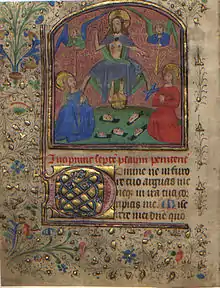 Incipiunt septē psalmi penitenc
Domine ne in furo
re tuo arguas me
neqz in ira tua cor
ripias me. Mise
rere mei dne quo